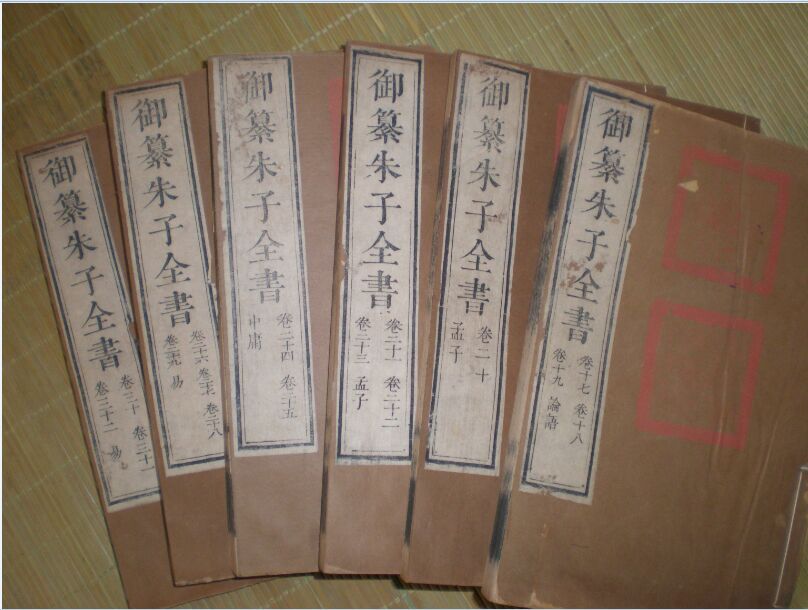 御纂朱子全書
卷十七 卷十八
卷十九 論語
御纂朱子全書
卷二十
孟子
御纂朱子全書
卷二十一 卷二十二
卷二十三 孟子
御纂朱子全書
卷二十四 卷二十五
中庸
御纂朱子全書
卷二十六 卷二十七 卷二十八
卷二十九 易
御纂朱子全書
卷三十 卷三十一
卷三十二 易